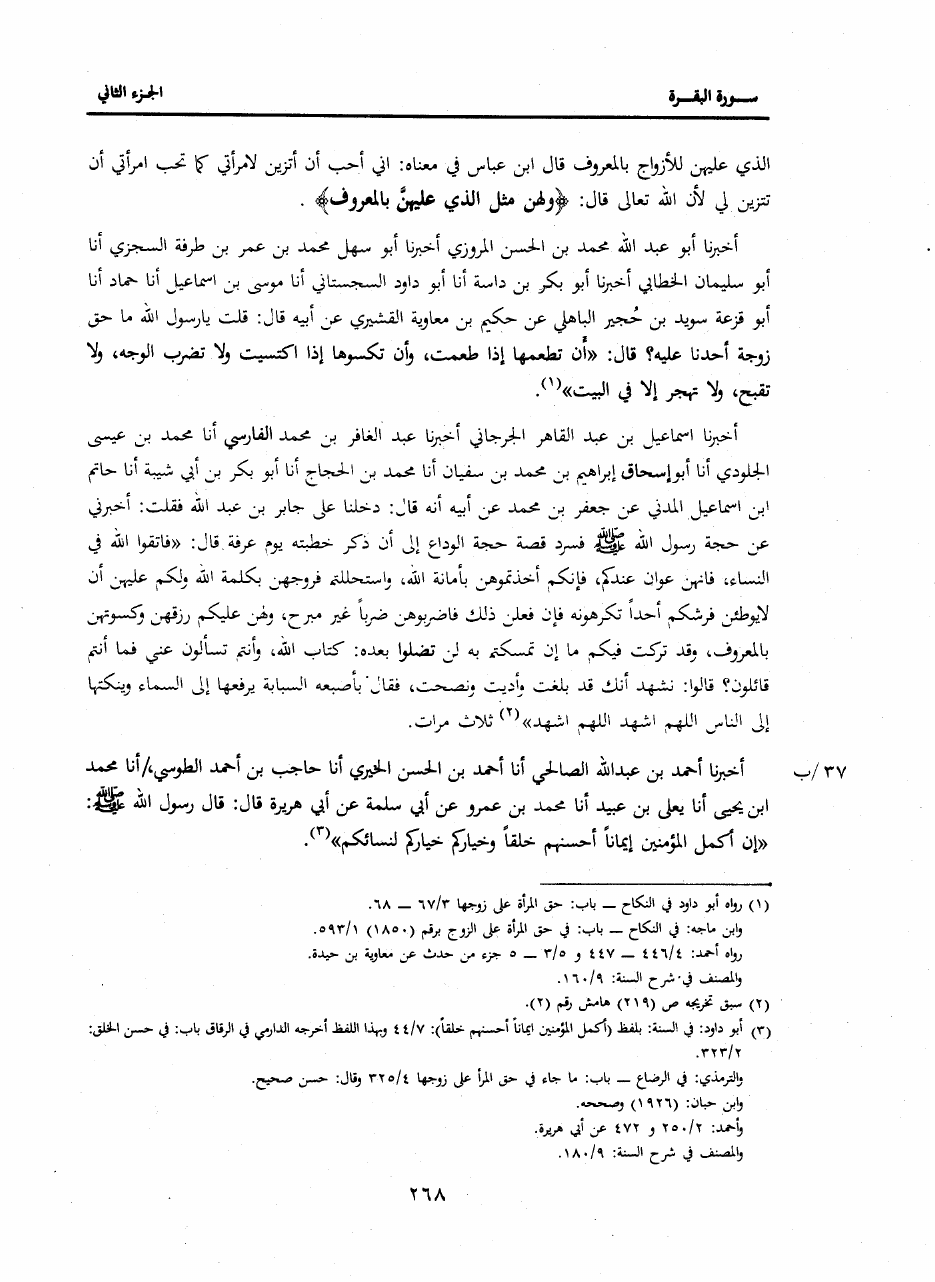 سـورة البقـرة
الجزء الثاني
الذي عليهن للأزواج بالمعروف قال ابن عباس في معناه: اني أحب أن أتزين لامرأتي كما تحب امرأتي أن
تتزين لي لأن الله تعالى قال: ﴿ولهن مثل الذي عليهنَّ بالمعروف﴾ .
أخبرنا أبو عبد الله محمد بن الحسن المروزي أخبرنا أبو سهل محمد بن عمر بن طرفة السجزي أنا
أبو سليمان الخطابي أخبرنا أبو بكر بن داسة أنا أبو داود السجستاني أنا موسى بن اسماعيل أنا حماد أنا
أبو قزعة سويد بن حُجير الباهلي عن حكيم بن معاوية القشيري عن أبيه قال: قلت يارسول الله ما حق
زوجة أحدنا عليه؟ قال: «أَن تطعمها إذا طعمت، وأن تكسوها إذا اكتسيت ولا تضرب الوجه، ولا
تقبح، ولا تهجر إلا في البيت»(١).
أخبرنا اسماعيل بن عبد القاهر الجرجاني أخبرنا عبد الغافر بن محمد الفارسي أنا محمد بن عيسى
الجلودي أنا أبو إسحاق إبراهيم بن محمد بن سفيان أنا محمد بن الحجاج أنا أبو بكر بن أبي شيبة أنا حاتم
ابن اسماعيل المدني عن جعفر بن محمد عن أبيه أنه قال: دخلنا على جابر بن عبد الله فقلت: أخبرني
عن حجة رسول الله ﷺ فسرد قصة حجة الوداع إلى أن ذكر خطبته يوم عرفة قال: «فاتقوا الله في
النساء، فانهن عوان عندكم، فإنكم أخذتموهن بأمانة الله، واستحللتم فروجهن بكلمة الله ولكم عليهن أن
لايوطئن فرشكم أحداً تكرهونه فإن فعلن ذلك فاضربوهن ضرباً غير مبرح، ولهن عليكم رزقهن وكسوتهن
بالمعروف، وقد تركت فيكم ما إن تمسكتم به لن تضلوا بعده: كتاب الله، وأنتم تسألون عني فما أنتم
قائلون؟ قالوا: نشهد أنك قد بلغت وأديت ونصحت، فقال بأصبعه السبابة يرفعها إلى السماء وينكتها
إلى الناس اللهم اشهد اللهم اشهد»(٢) ثلاث مرات.
أخبرنا أحمد بن عبدالله الصالحي أنا أحمد بن الحسن الحيري أنا حاجب بن أحمد الطوسي،/أنا محمد
٣٧/ب
ابن يحيى أنا يعلى بن عبيد أنا محمد بن عمرو عن أبي سلمة عن أبي هريرة قال: قال رسول الله ﷺ:
«إن أكمل المؤمنين إيماناً أحسنهم خلقاً وخياركم خياركم لنسائكم»(٣).
(١) رواه أبو داود في النكاح — باب: حق المرأة على زوجها ٦٧/٣ — ٦٨.
وابن ماجه: في النكاح — باب: في حق المرأة على الزوج برقم (١٨٥٠) ٥٩٣/١.
رواه أحمد: ٤٤٦/٤ — ٤٤٧ و ٣/٥ — ٥ جزء من حدث عن معاوية بن حيدة.
والمصنف في شرح السنة: ١٦٠/٩.
(٢) سبق تخريجه ص (٢١٩) هامش رقم (٢).
(٣) أبو داود: في السنة: بلفظ (أكمل المؤمنين ايماناً أحسنهم خلقاً): ٤٤/٧ وبهذا اللفظ أخرجه الدارمي في الرقاق باب: في حسن الخلق:
٣٢٣/٢.
والترمذي: في الرضاع — باب: ما جاء في حق المرأ على زوجها ٣٢٥/٤ وقال: حسن صحيح.
وابن حبان: (١٩٢٦) وصححه.
وأحمد: ٢٥٠/٢ و ٤٧٢ عن أبي هريرة.
والمصنف في شرح السنة: ١٨٠/٩.
٢٦٨